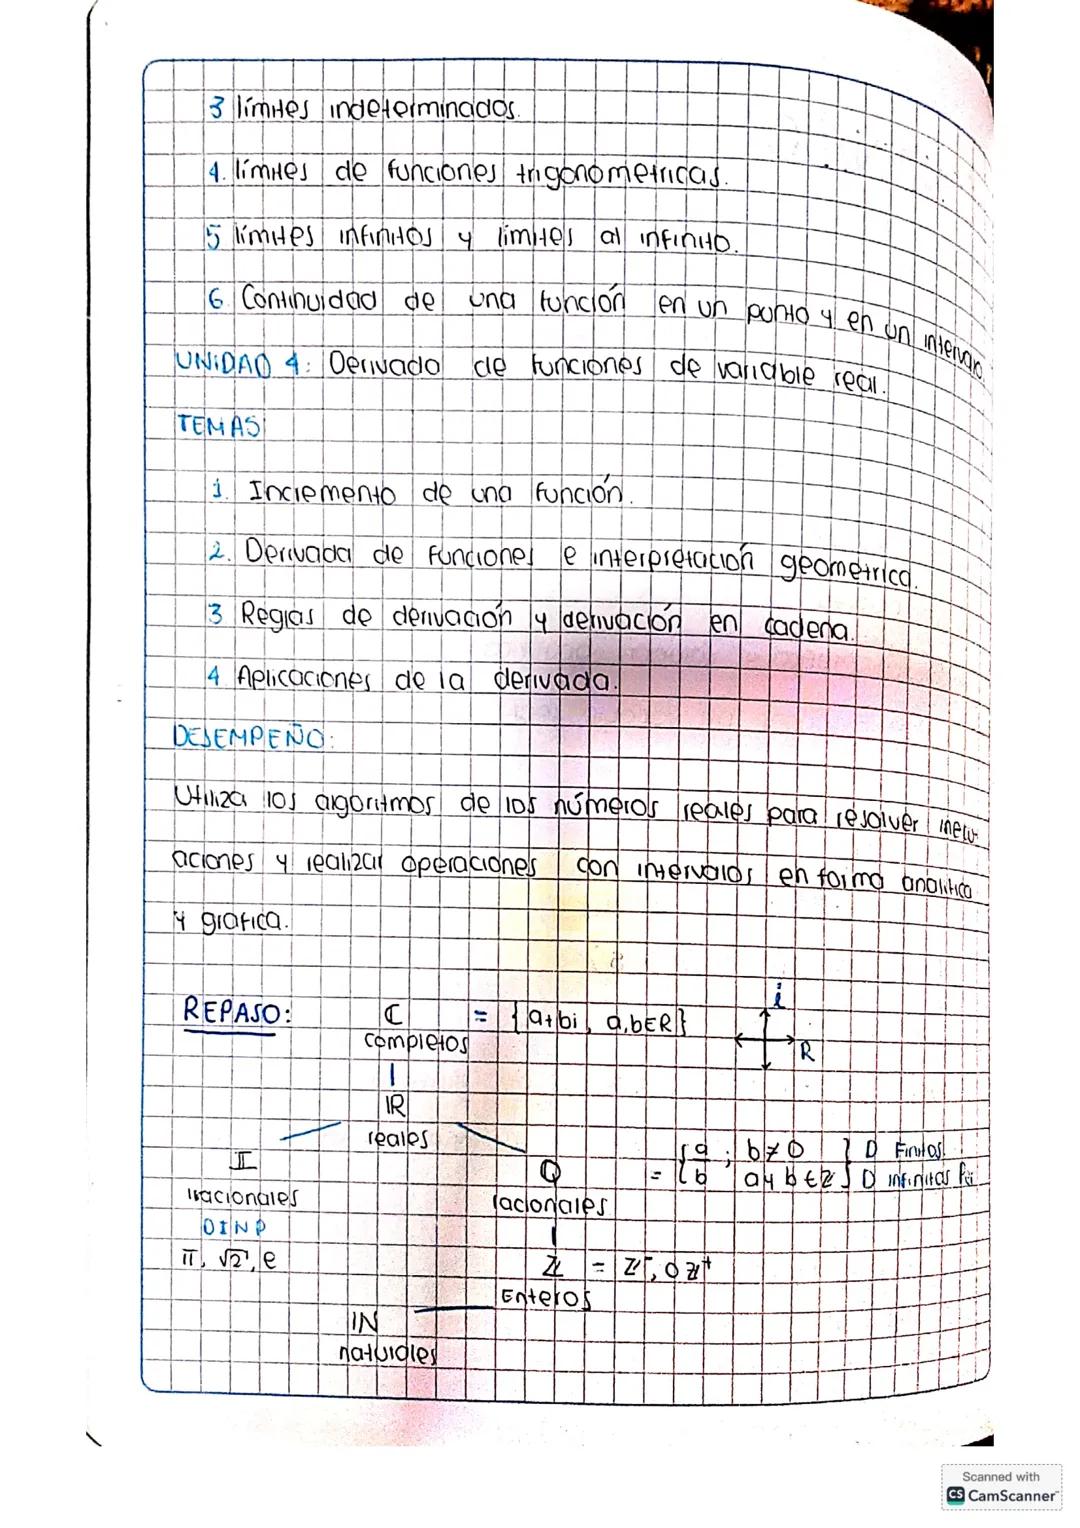 3 límites indeterminados.
4. límites de funciones trigonometricas.
5 límites infinitos y limites al infinito.
6. Continuidad de una función en un punto y en un intervalo.
UNIDAD 4: Derivado de funciones de variable real.
TEMAS:
1. Incremento de una función.
2. Derivada de funciones e interpretación geometrica.
3 Reglas de derivación y derivación en cadena.
4. Aplicaciones de la derivada.
DESEMPEÑO:
Utiliza los algoritmos de los números reales para resolver inecu-
aciones y realizar operaciones con intervalos en forma analitica
y grafica.
REPASO: ℂ = {a+bi, a,b∈R} i
completos R
IR
reales
II Q = {a/b ; b≠0 a y b ∈ Z} D Finitas
D infinitas
irracionales racionales
DINP
π, √2, e Z = Z⁻, 0 Z⁺
Enteros
IN
naturales
Scanned with
CS CamScanner